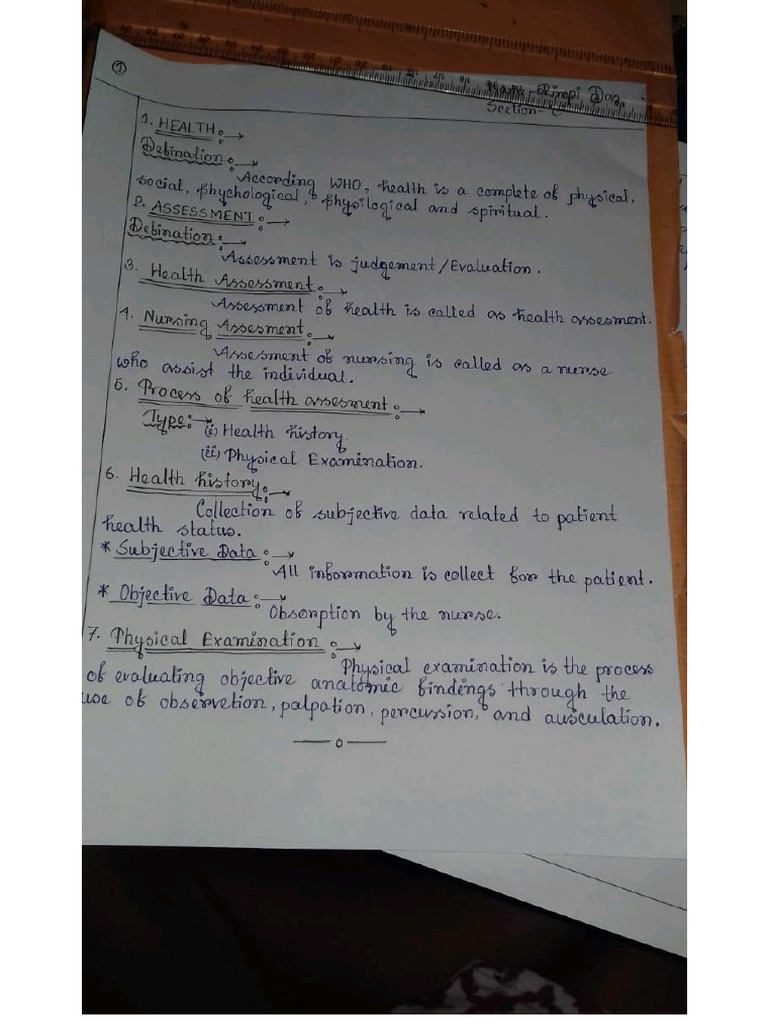 ①
Section-C
1. HEALTH:→
Defination:→
According WHO, health is a complete of physical,
social, phychological, physilogical and spiritual.
2. ASSESSMENT:→
Defination:→
Assessment is judgement/Evaluation.
3. Health Assessment:→
Assessment of health is called as health assesment.
4. Nursing Assesment:→
Assesment of nursing is called as a nurse
who assist the individual.
5. Process of health assesment:→
Type:→
(i) Health history.
(ii) Physical Examination.
6. Health history:→
Collection of subjective data related to patient
health status.
* Subjective Data:→
All information is collect for the patient.
* Objective Data:→
Obsorption by the nurse.
7. Physical Examination:→
Physical examination is the process
of evaluating objective anatomic findings through the
use of observetion, palpation, percussion, and ausculation.
—— o ——